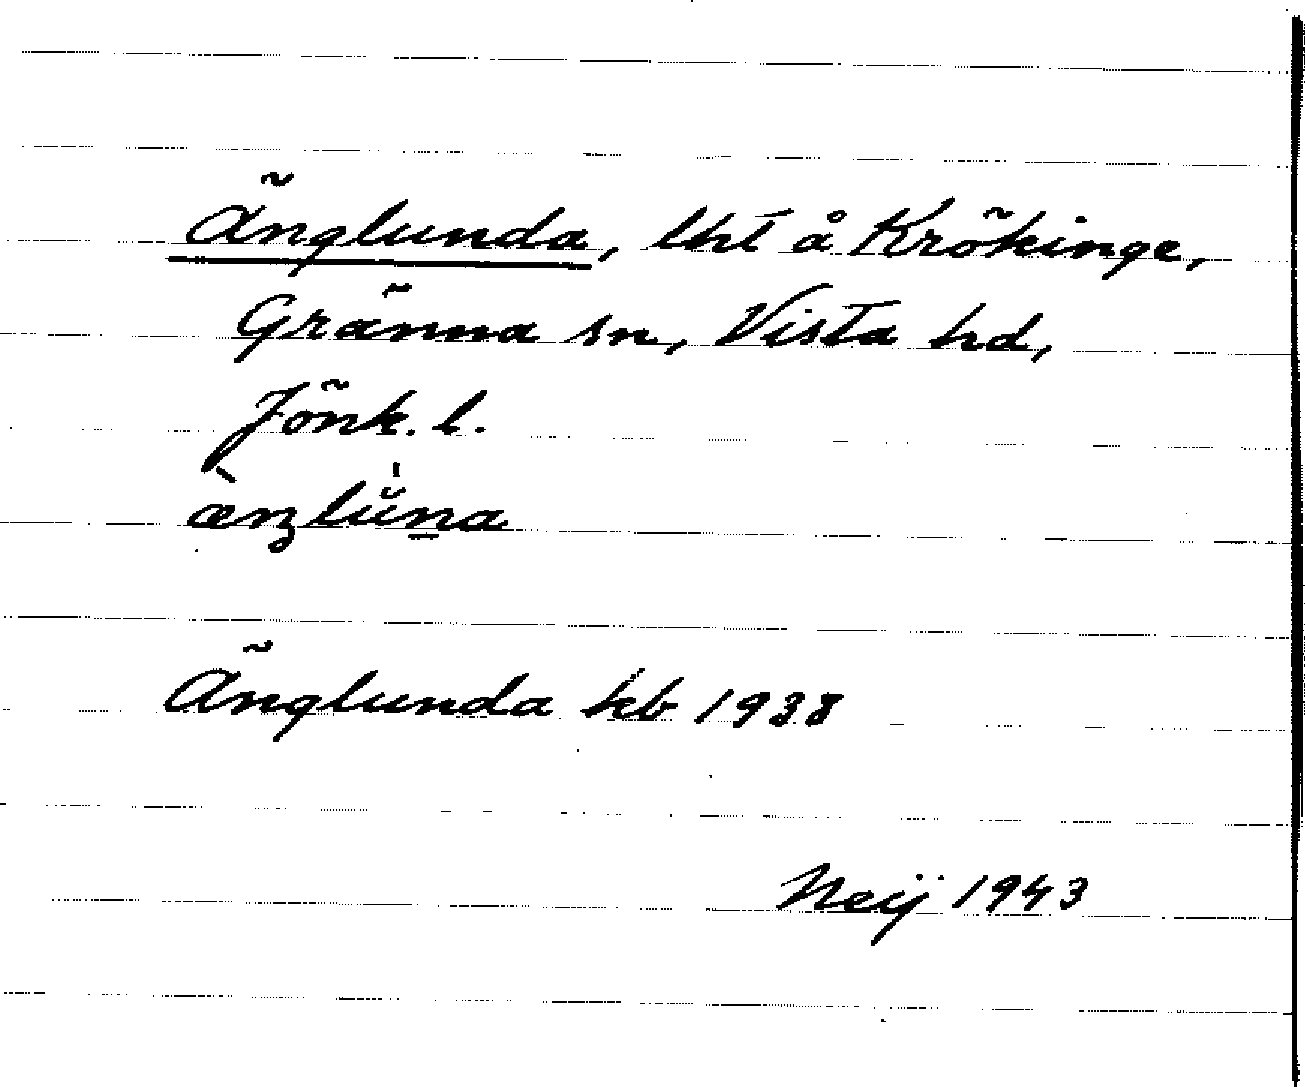 Änglunda, lht å Krökinge,
Gränna sn, Vista hd,
Jönk. l.
Änglunda kb 1938
Neij 1943